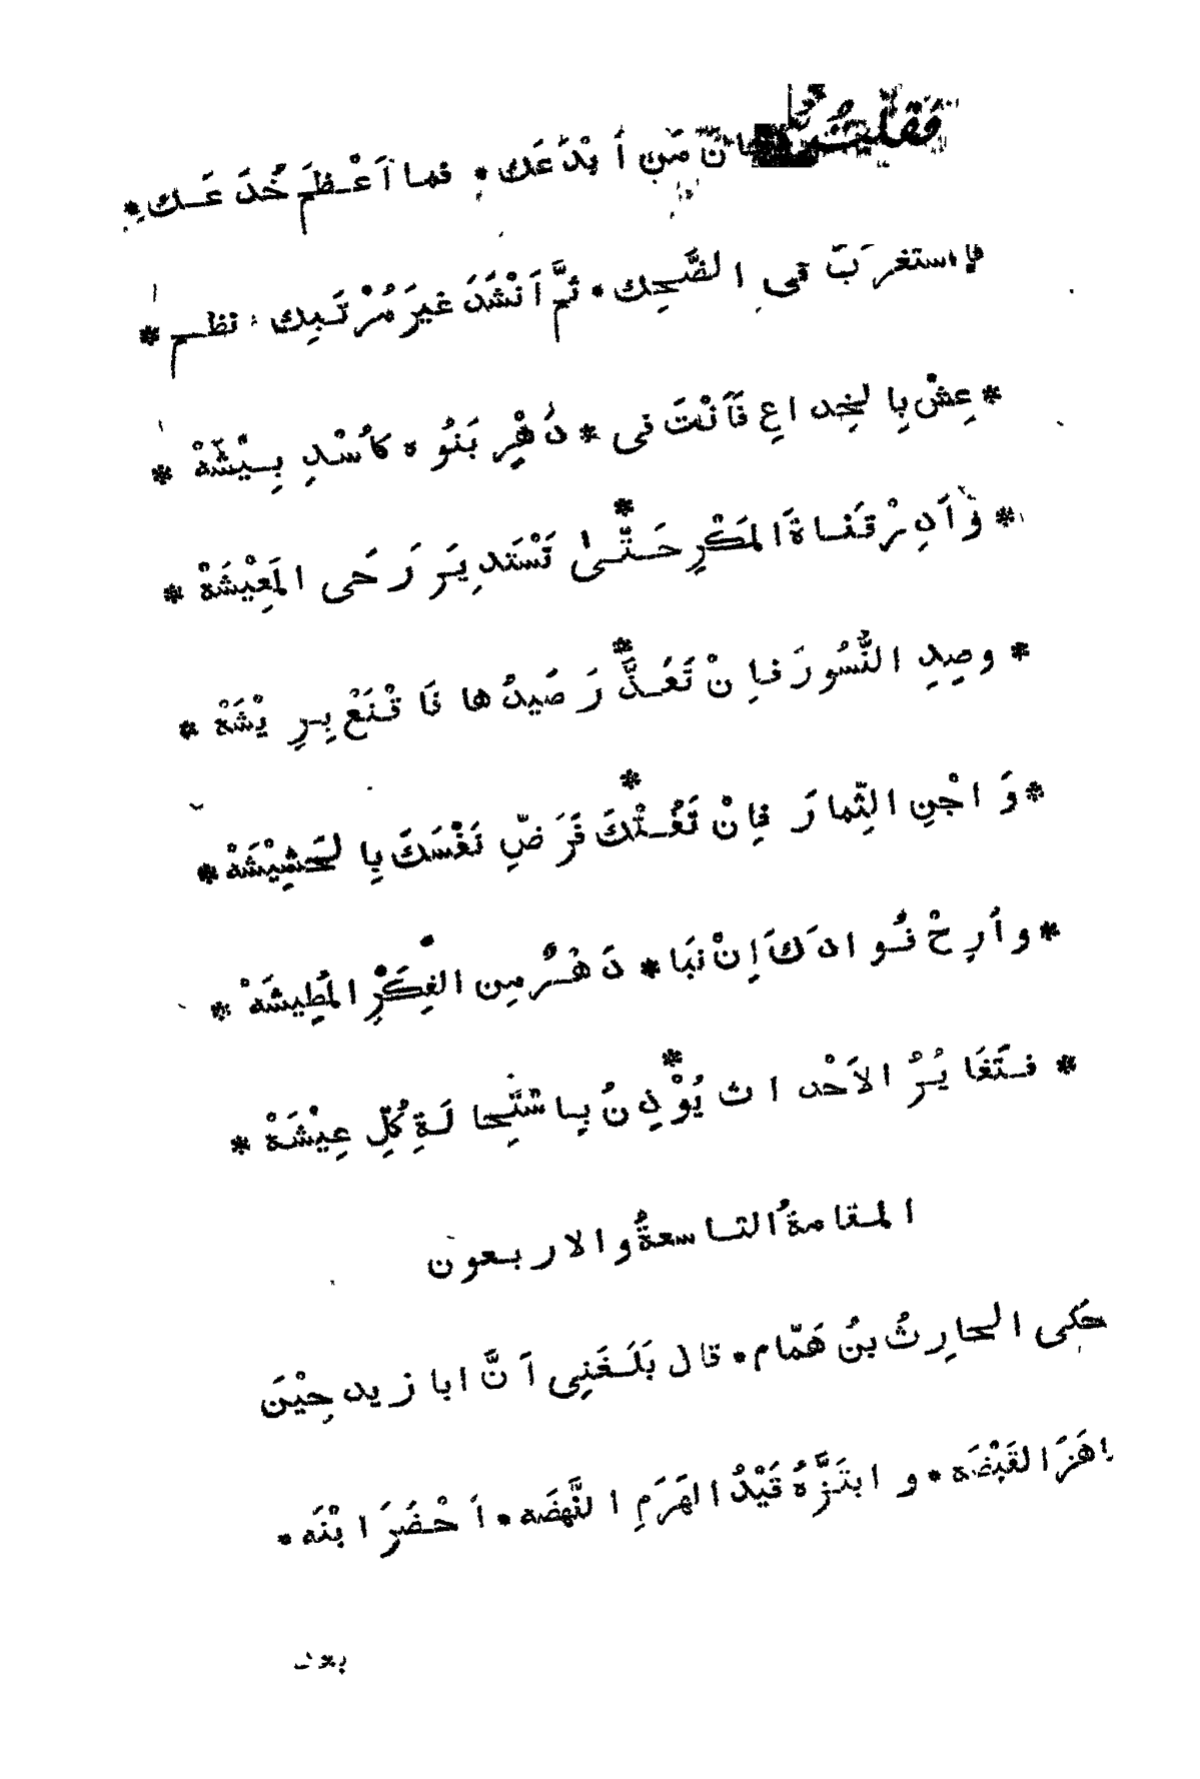 فَقُلْتُ مَن أَبْدَعَك * فما اَعْظَمَ خُدَعَك *
فاستغرَبَ في الضَّحِك * ثمَّ اَنْشَدَ غيرَ مُرْتَبِك * نظم *
* عِشْ بِالخِداعِ فَاَنْتَ فى * دَهْرٍ بَنُوه كَاُسْدِ بِيْشَهْ *
* وَاَدِرْ قَناةَ المَكْرِ حَتّٰى * تَسْتَديَرَ رَحَى المَعِيْشَهْ *
* وصِدِ النُّسُورَ فاِنْ تَعَذَّ * رَ صَيدُها فَاقْنَعْ بِرِيْشَهْ *
* وَاجْنِ الثِّمارَ فاِنْ تَفُتْكَ * فَرَضِّ نَفْسَكَ بِالحَشِيْشَهْ *
* واَرِحْ فُوادَكَ اِنْ نبَا * دَهْرٌ مِن الفِكَرِ المُطِيشَهْ *
* فتَغَايُرُ الاَحْداثِ يُوْذِنُ * بِاسْتِحالَةِ كُلِّ عِيْشَهْ *
المقامةُ التاسعةُ والاربعون
حَكى الحارِثُ بنُ هَمّام * قال بَلَغَنِى اَنَّ ابا زيد حِيْنَ
ناهَزَ القَبْضَه * وابتَزَّهُ قَيْدُ الهَرَمِ النَّهْضَه * اَحْضَرَ ابْنَه *
بعد